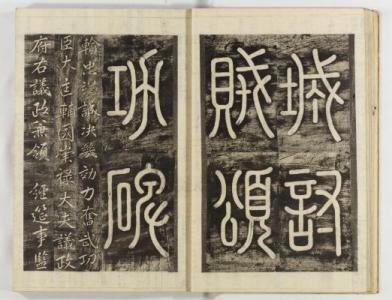 城討
賊頌
功碑
輸忠竭誠決幾効力奮武功
臣大匡輔國崇祿大夫議政
府右議政兼領 經筵事監